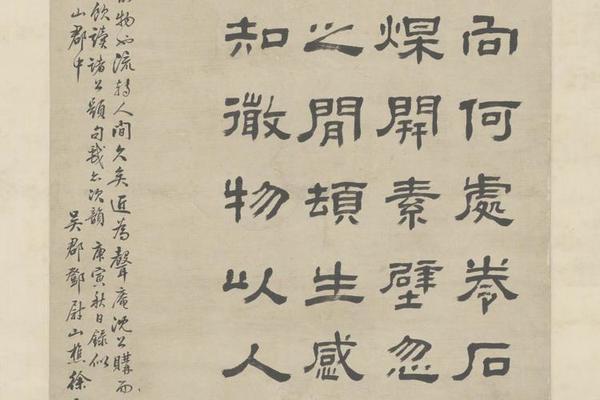 向何處拳石
煤開素壁忽
之間頓生感
知微物以人
物如流轉人間久矣近為聲庵沈公購而
飲讀諸公題句次韻庚寅秋日錄似
山郡中
吳郡鄧尉山樵徐